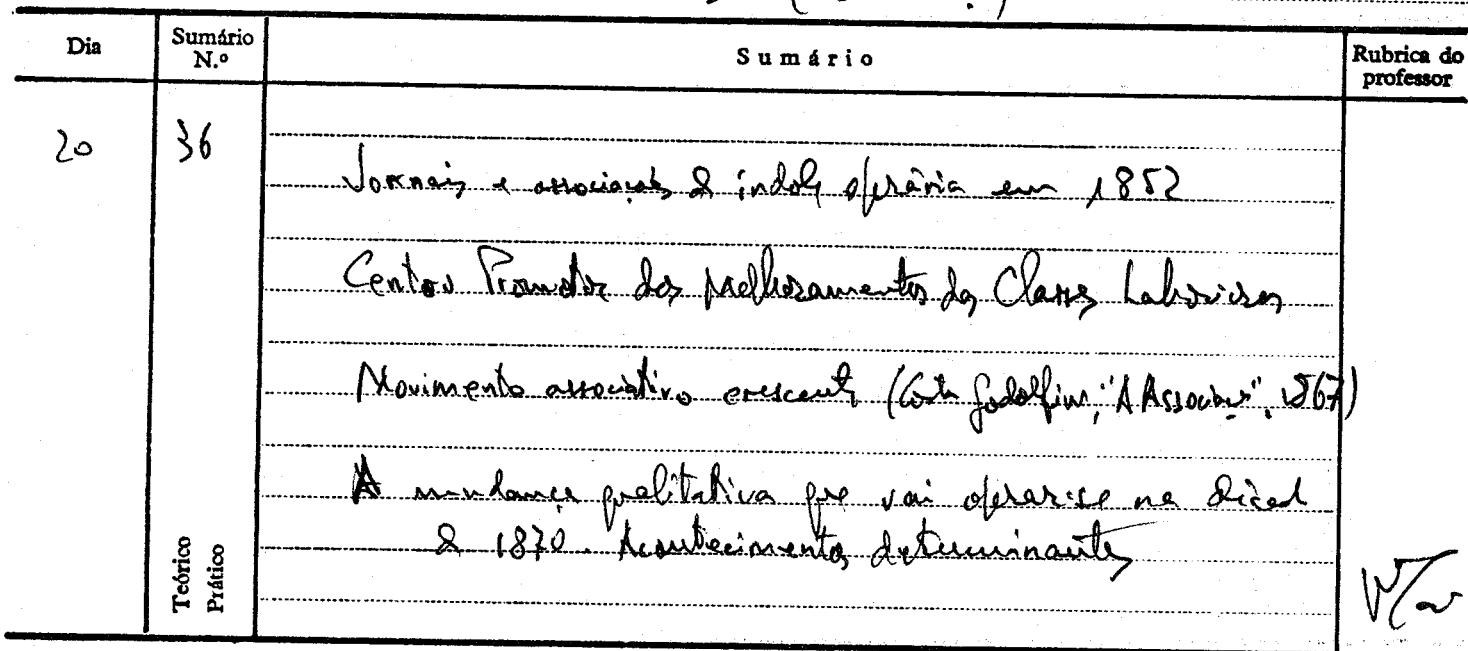 Dia
Sumário N.º
Sumário
Rubrica do professor
20
36
Jornais e associações de índole operária em 1852
Centro Promotor dos Melhoramentos das Classes Laboriosas
Movimento associativo crescente (Costa Godolfim, "A Associação", 1867)
A mudança qualitativa que vai operar-se na década
de 1870. Acontecimentos determinantes
Teórico
Prático